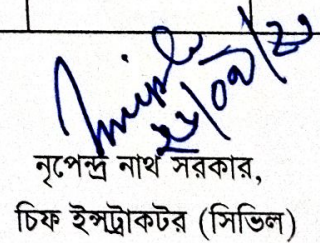 নৃপেন্দ্র নাথ সরকার,
চিফ ইন্সট্রাকটর (সিভিল)